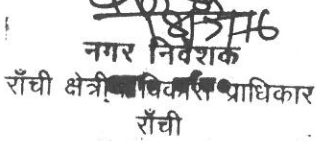 नगर निवेशक
राँची क्षेत्रीय विकास प्राधिकार
राँची